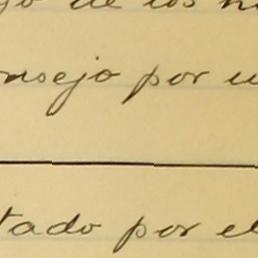 de los
nsejo por u
tado por el